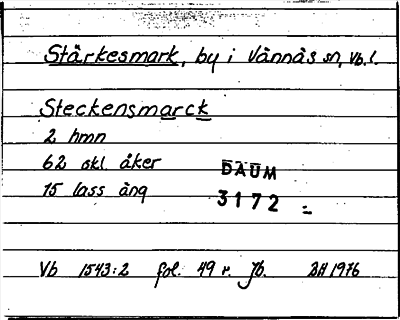 Stärkesmark, by i Vännäs sn, Vb. l.
Steckensmarck
2 hmn
62 skl åker
15 lass äng
DAUM
3172
Vb 1543:2 fol. 49 r. Jb. DH 1976